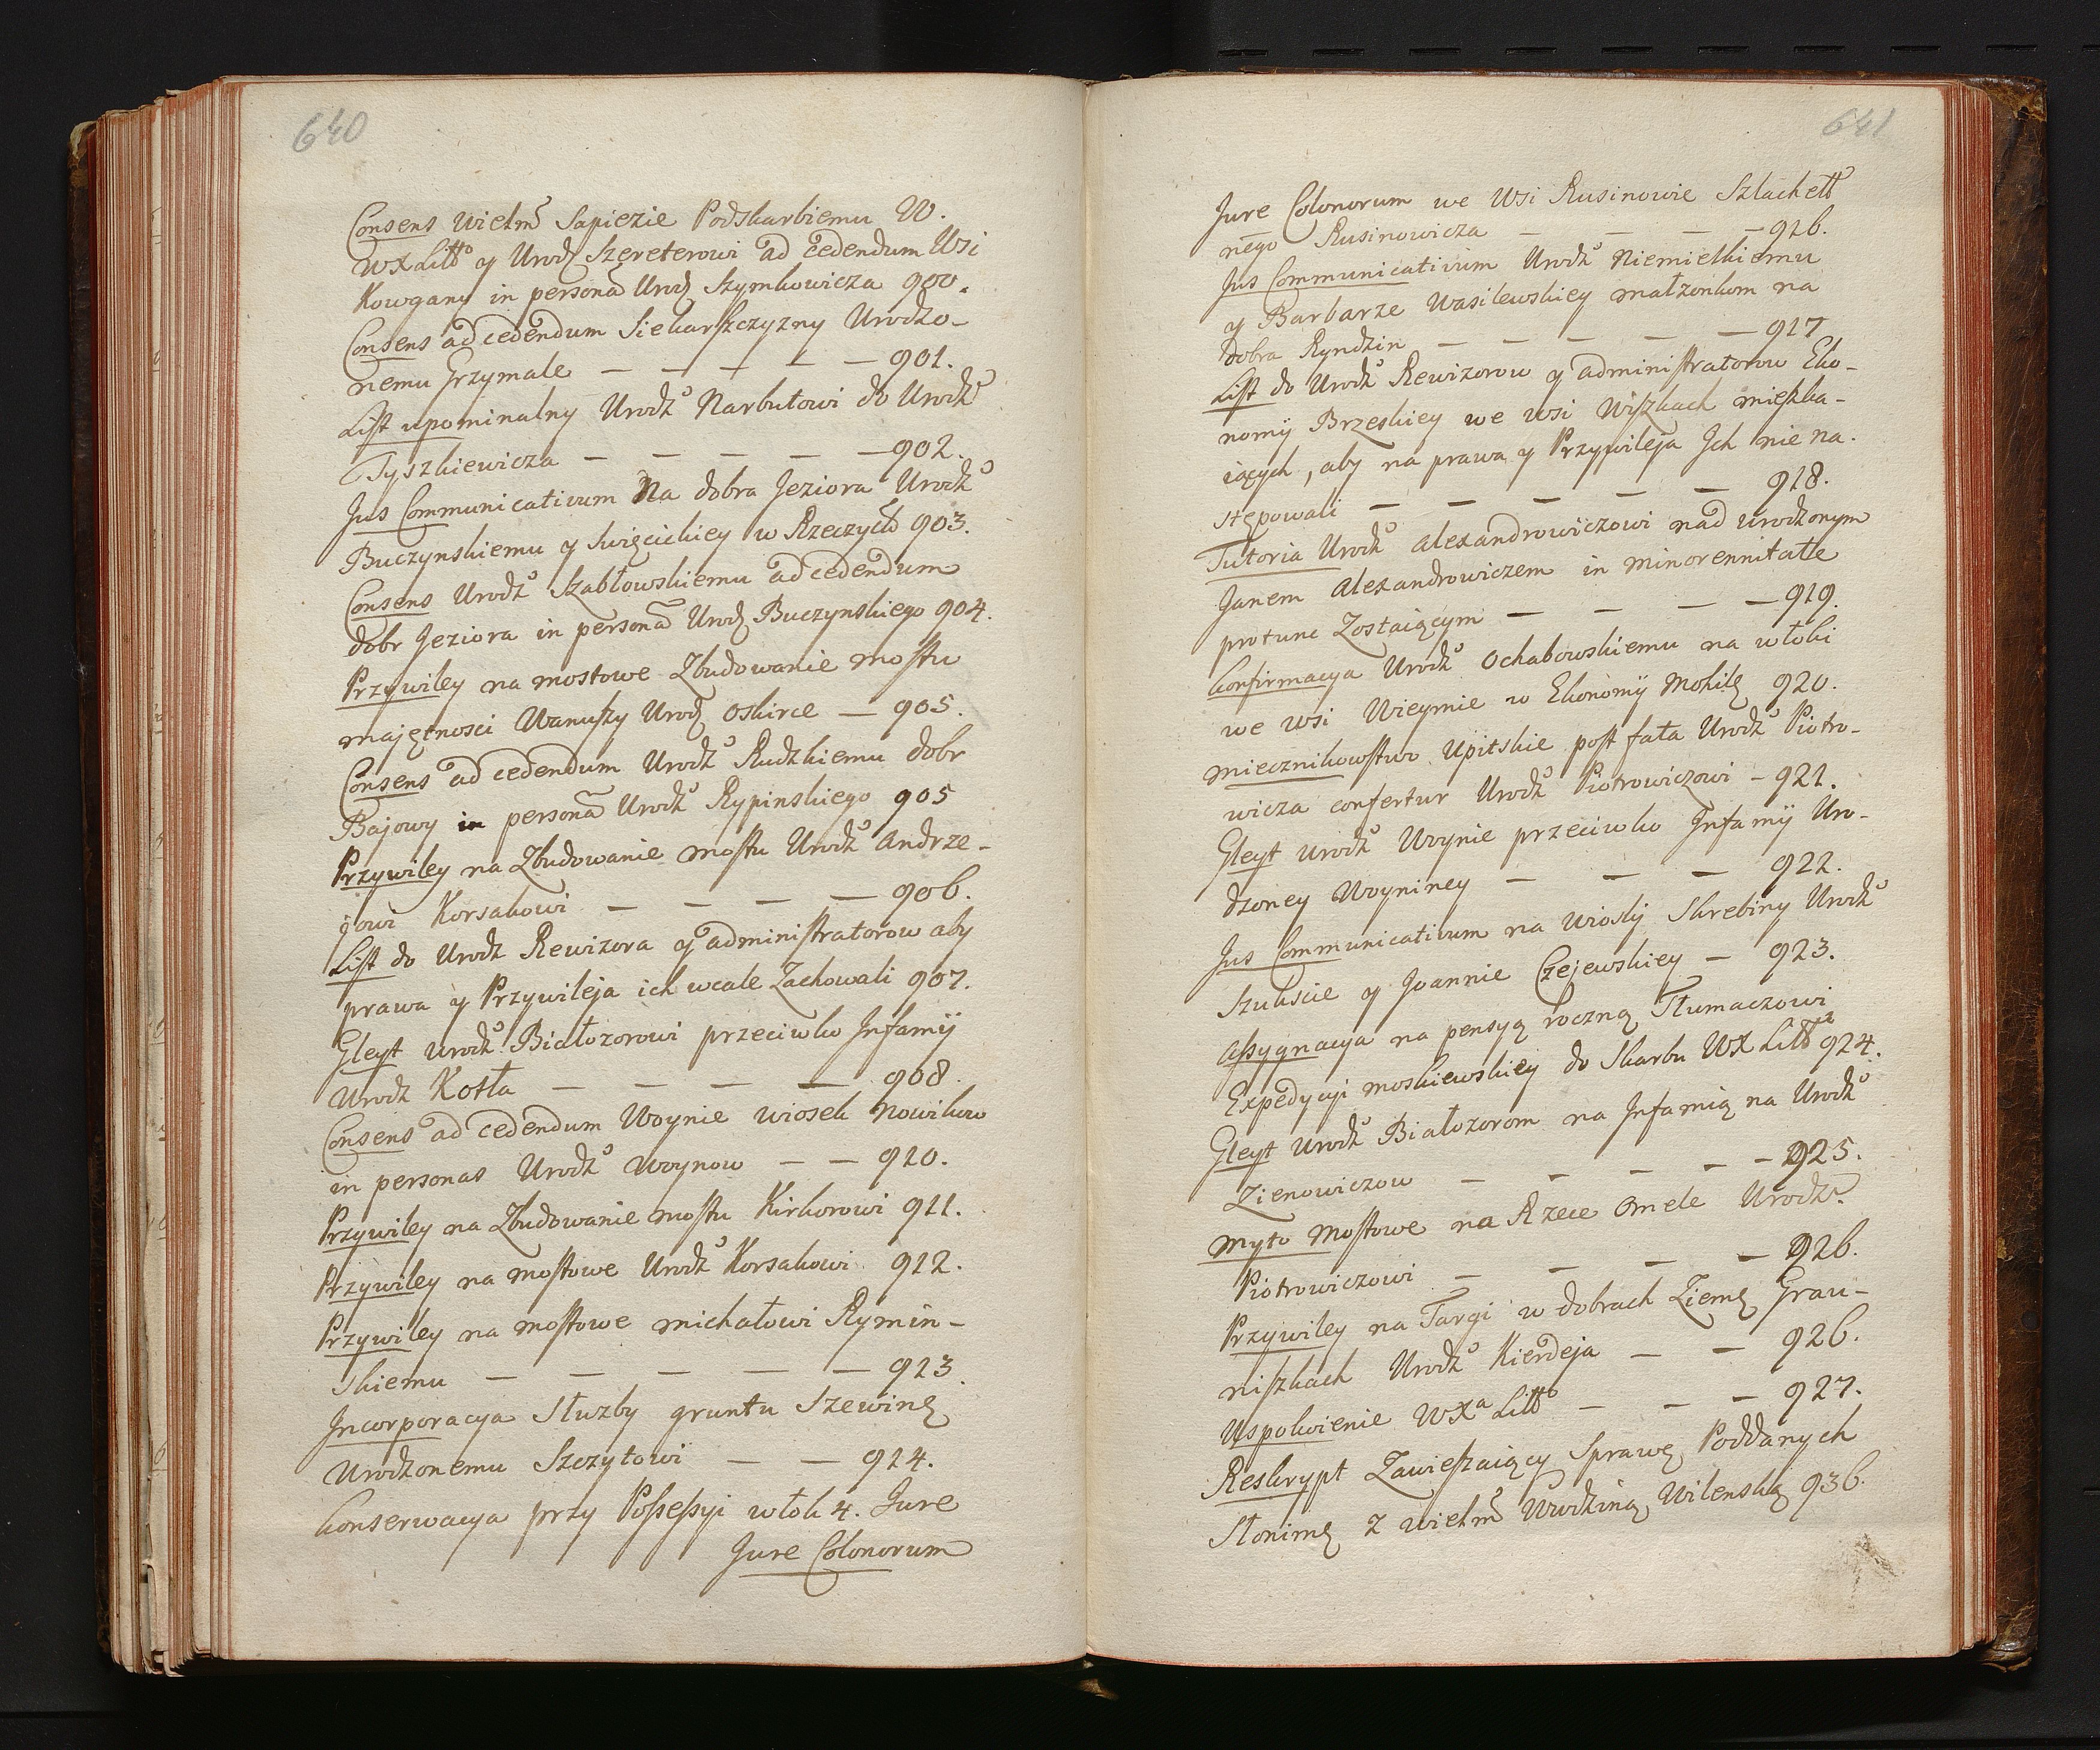 640
Consens Wielm° Sapiezie Podskarbiemu W.
WX Litt° y Urodz Szreterowi ad cedendum Wsi
Kowgany in persona Urodz Szymkowicza 900.
Consens ad cedendum Siekarszczyzny Urodzo-
nemu Grzymale — — — — — 901.
List upominalny Urodz° Narbutowi do Urodz°
Tyszkiewicza — — — — — 902.
Jus Communicativum Na dobra Jeziora Urodz°
Buczynskiemu y Swięcickiey w Rzeczyck 903.
Consens Urodz° Szabłowskiemu ad cedendum
dobr Jeziora in persona Urodz Buczynskiego 904.
Przywiley na mostowe Zbudowanie mostu
majętnosci Wanuszy Urodz Oskirce — 905.
Consens ad cedendum Urodz° Rudzkiemu dobr
Bajowy in persona Urodz° Rypinskiego 905
Przywiley na Zbudowanie mostu Urodz° Andrze-
jowi Korsakowi — — — — 906.
List do Urodz Rewizora y administratorow aby
prawa y Przywileja ich wcale Zachowali 907.
Gleyt Urodz° Białozorowi przeciwko Infamij
Urodz Kotła — — — — 908.
Consens ad cedendum Woynie wiosek Nowikow
in personas Urodz° Woynow — — 910.
Przywiley na Zbudowanie mostu Kirkorowi 911.
Przywiley na mostowe Urodz° Korsakowi 912.
Przywiley na mostowe Michałowi Rymin-
skiemu — — — — — 913.
Incorporacya Służby gruntu Szewinę
Urodzonemu Szczytowi — — 914.
Konserwacya przy Possessyi włok 4. Jure
Jure Colonorum
641
Jure Colonorum we Wsi Rusinowie Szlachett
nego Rusinowicza — — — — 916.
Jus Communicativum Urodz° Niemielkiemu
y Barbarze Wasilewskiey małzonkom na
dobra Ryndzin — — — — — 917
List do Urodz° Rewizorow y administratorow Eko-
nomij Brzeskiey we wsi Wiszkach mieszka-
iących, aby na prawa y Przywileja Ich nie na.
stępowali — — — — — 918.
Tutoria Urodz° Alexandrowiczowi nad urodzonym
Janem Alexandrowiczem in minorennitate
protunc Zostaiącym — — — — 919.
Konfirmacya Urodz° Ochabowskiemu na włoki
we wsi Wieymie w Ekonomij Mohilę 920.
Miecznikowstwo Upitskie post fata Urodz° Piotro-
wicza confertur Urodz° Piotrowiczowi - 921.
Gleyt Urodz° Woynie przeciwko Infamij Uro-
dzoney Woyniney — — — 922.
Jus Communicativum na Wioski Skrebiny Urodz°
Szukscie y Joannie Czejewskiey — 923.
Assygnacya na pensyą roczną Tłumaczowi
Expedycyi moskiewskiey do Skarbu WX Litt° 924.
Gleyt Urodz° Białozorom na Infamią na Urodz°
Zienowiczow — — — — — 925.
Myto Mostowe na Rzece Omele Urodz°
Piotrowiczowi — — — — 926.
Przywiley na Targi w dobrach Ziemę Grau-
niszkach Urodz° Kierdeja — — 926.
Uspokoienie WXa Litt° — — — 927.
Reskrypt Zawieszaiący Sprawę Poddanych
Słonimę z wielm° Wwodziną Wilenską 936.